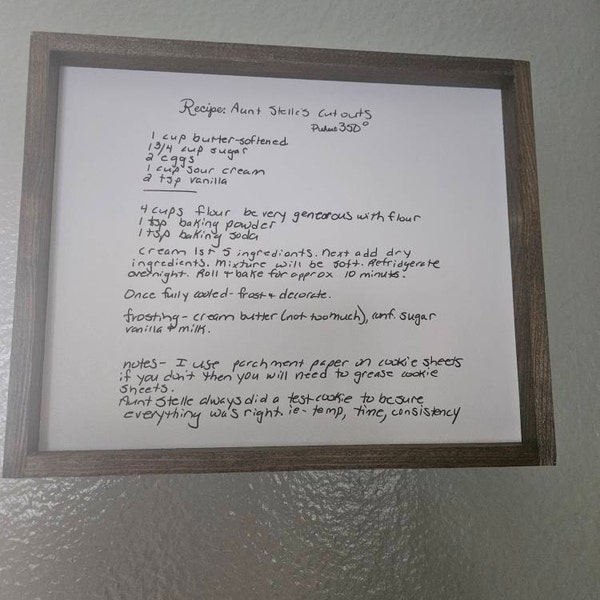 Recipe: Aunt Stelle's Cut outs
Preheat 350°
1 cup butter-softened
1 3/4 cup sugar
2 eggs
1 cup sour cream
2 tsp vanilla
4 cups flour be very generous with flour
1 tsp baking powder
1 tsp baking soda
Cream 1st 5 ingredients. Next add dry
ingredients. Mixture will be soft. Refridgerate
overnight. Roll + bake for approx 10 minutes.
Once fully cooled - frost + decorate.
frosting - cream butter (not too much), conf. sugar
vanilla + milk.
notes - I use parchment paper on cookie sheets
if you don't then you will need to grease cookie
sheets.
Aunt Stelle always did a test cookie to be sure
everything was right. ie - temp, time, consistency